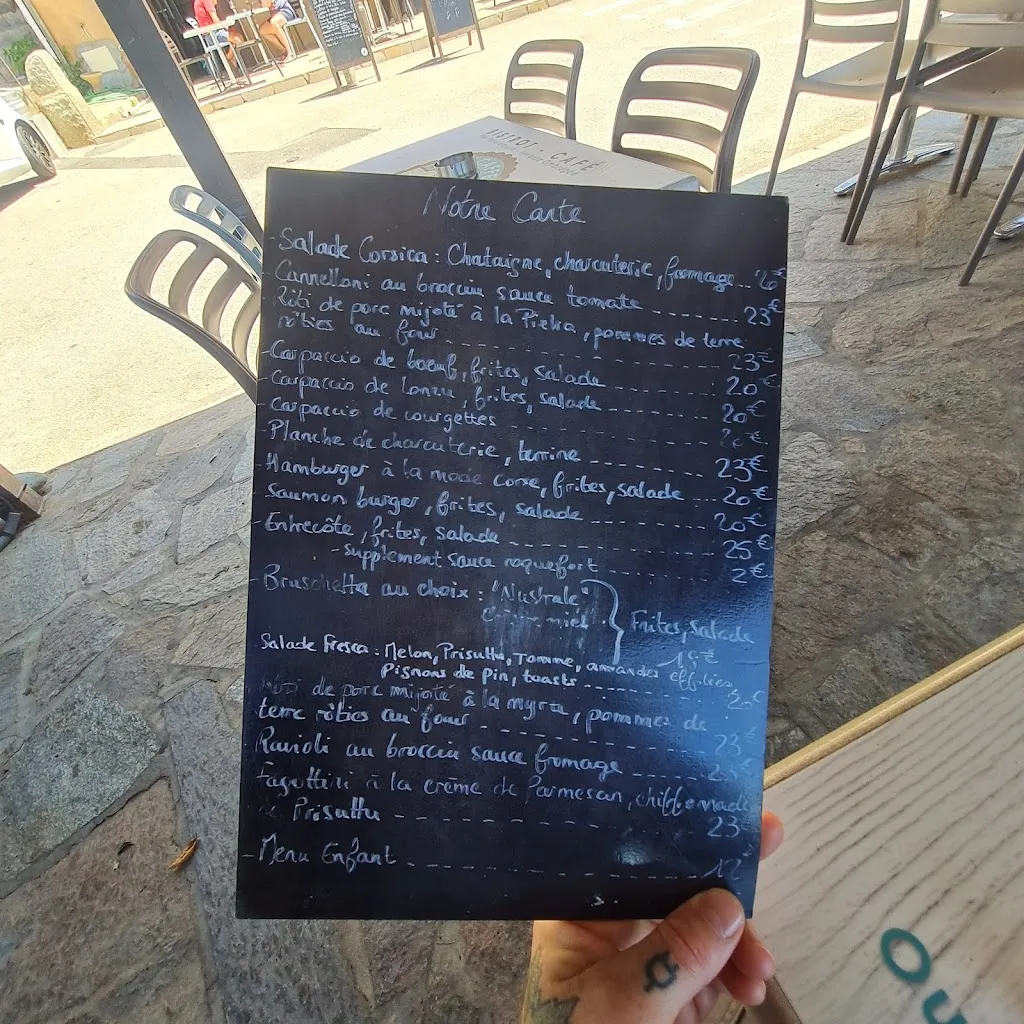 BISTROT - CAFÉ
Notre Carte
- Salade Corsica : Chataigne, charcuterie, fromage ... 20€
- Cannelloni au brocciu sauce tomate ------ 23€
- Rôti de porc mijoté à la Pietra, pommes de terre
rôties au four ------ 23€
- Carpaccio de boeuf, frites, salade ------ 20€
- Carpaccio de lonzu, frites, salade ------ 20€
- Carpaccio de courgettes ------ 20€
- Planche de charcuterie, terrine ------ 23€
- Hamburger à la mode corse, frites, salade --- 20€
- Saumon burger, frites, salade ------ 20€
- Entrecôte, frites, salade ------ 25€
- supplement sauce roquefort ------ 2€
- Bruschetta au choix : "Nustrale"
miel } Frites, salade
Salade Fresca : Melon, Prisuttu, Tomme, amandes effilées
Pignons de pin, toasts ------ 20€
Rôti de porc mijoté à la myrte, pommes de
terre rôties au four ------ 23€
Ravioli au brocciu sauce fromage ------
Fagottini à la crème de Parmesan, chiffonnade
de Prisuttu ------ 23€
- Menu Enfant ------ 12€
Ou